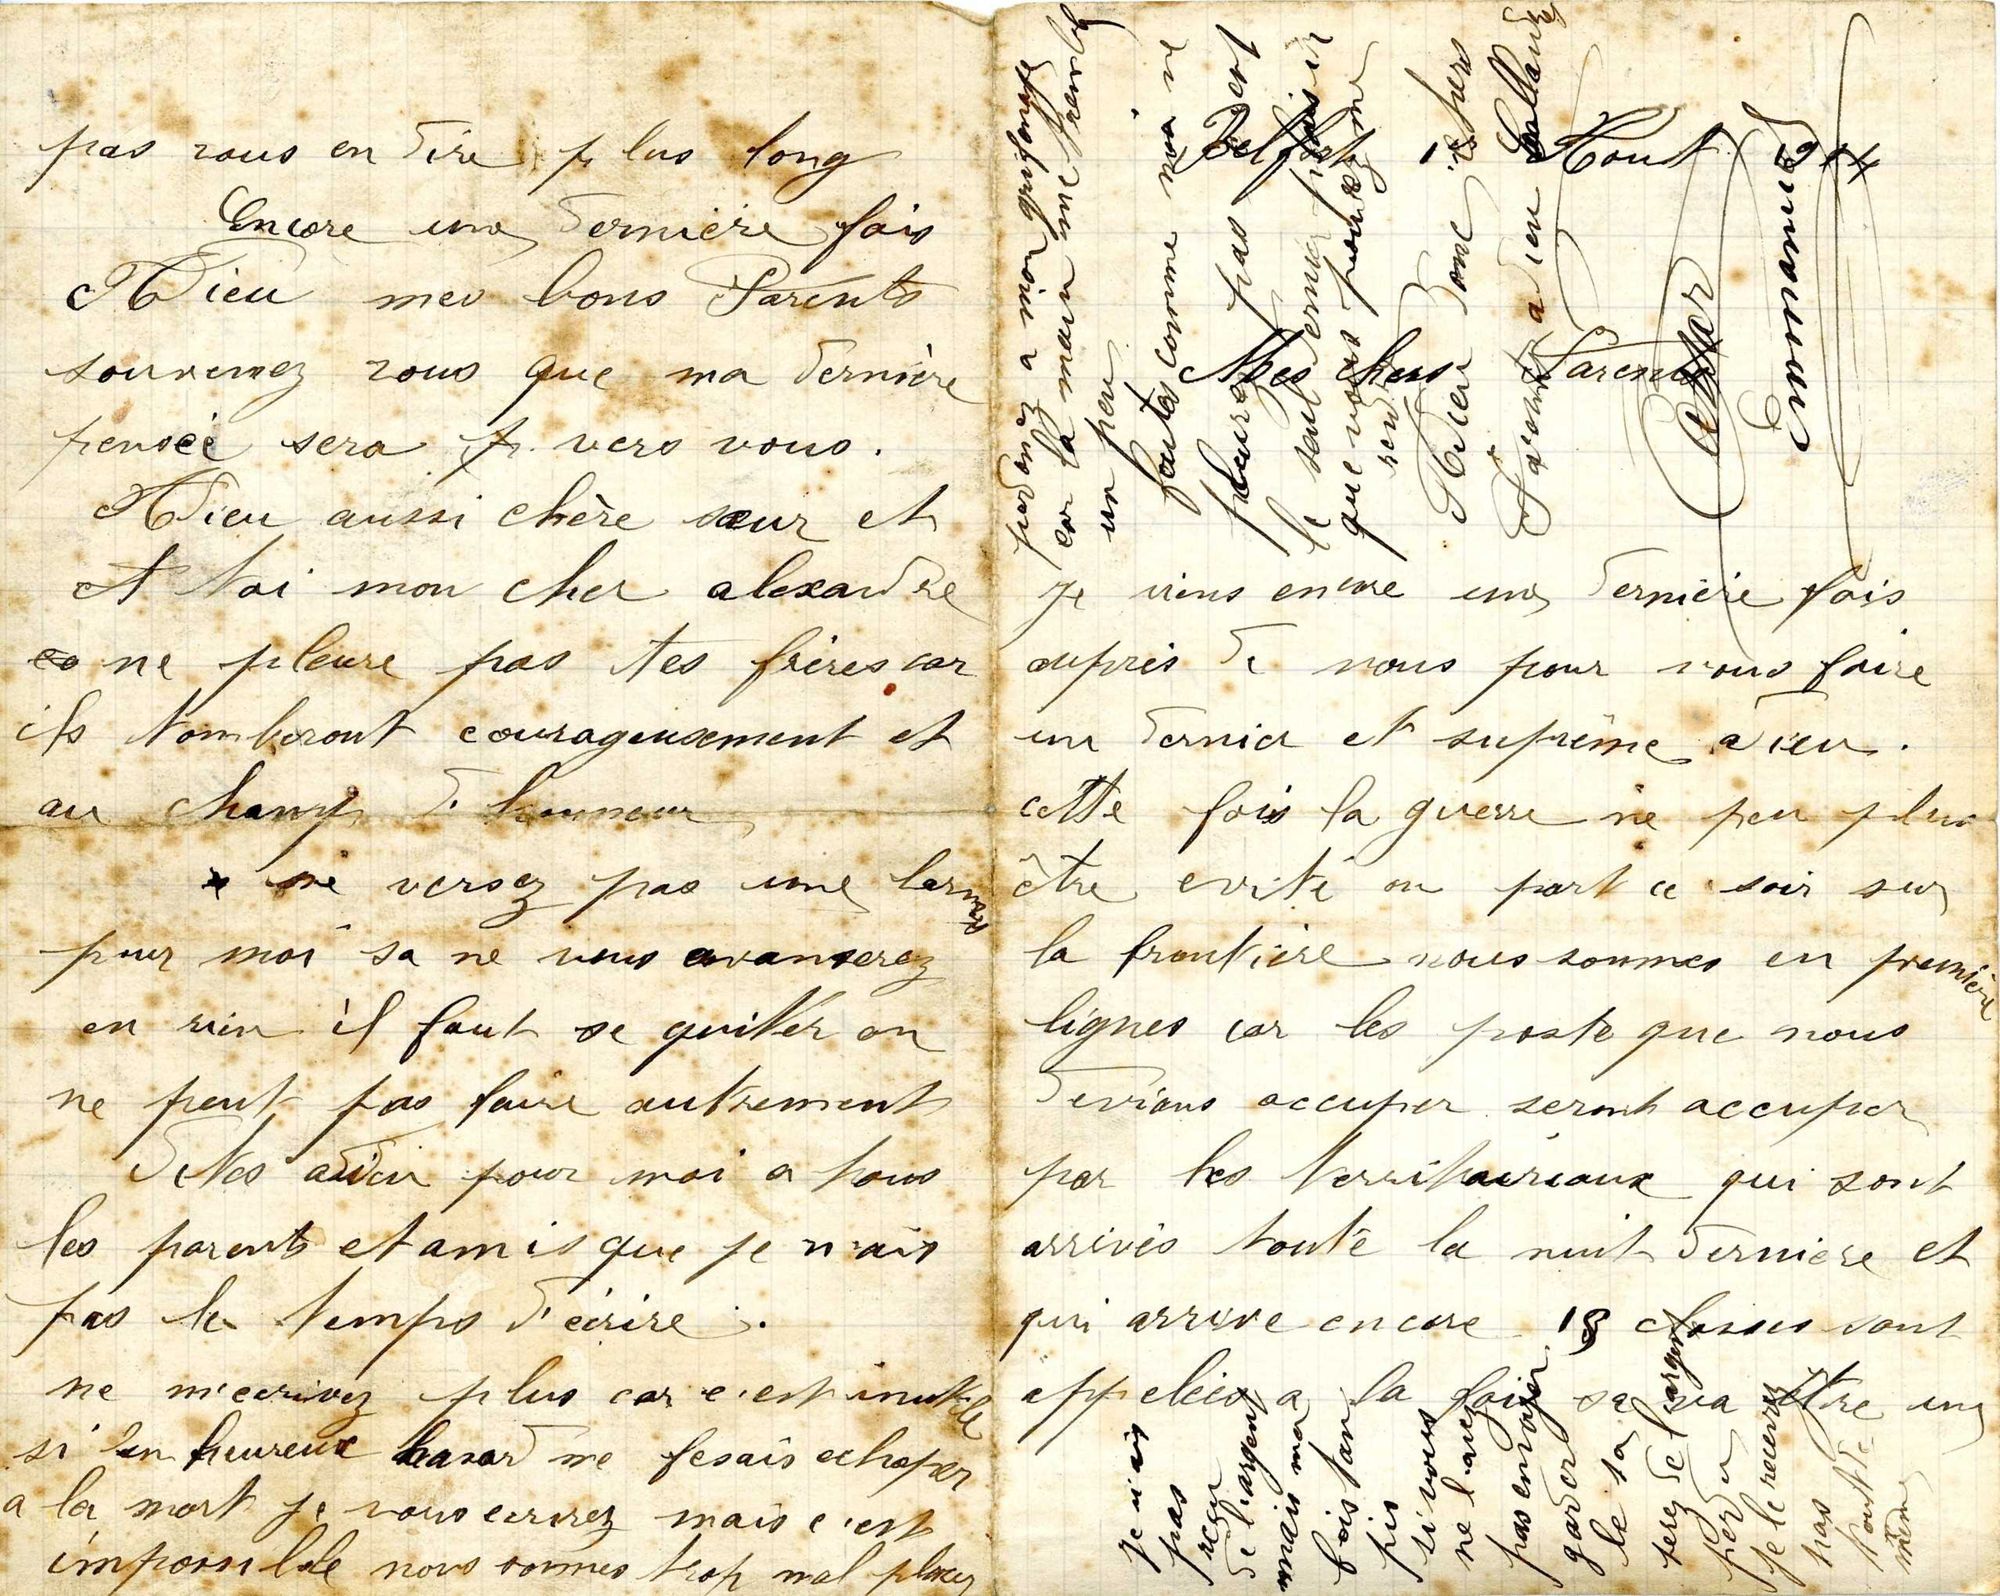 Belfort 1 Aout 914
Mes chers Parents
Je viens encore une dernière fois
auprès de vous pour vous faire
un dernier et suprême adieu.
cette fois la guerre ne peu plus
être evité on part ce soir sur
la frontière nous sommes en première
lignes car les poste que nous
devions occuper seront accuper
par les territoiriaux qui sont
arrivés toute la nuit derniere et
qui arrive encore 13 classes sont
appelées a la fois sa va être une
pas vous en dire plus long
Encore une dernière fois
Adieu mes bons Parents
souvenez vous que ma dernière
pensée sera p vers vous.
Adieu aussi chère sœur et
et toi mon cher alexandre
ne pleure pas tes frères car
ils tomberont courageusement et
au champ d honneur
ne versez pas une larmes
pour moi sa ne vous avanserez
en rien il faut se quitér on
ne peut pas faire autrement
dites adieu pour moi a tous
les parents et amis que je n'ais
pas le temps d'écrire.
ne m'ecrivez plus car c'est inutile
si un heureux hasard me fesais echaper
a la mort je vous ecrirez mais c'est
impossible nous sommes trop mal placez
pardonnez a mon griffonage
car la main me tremble
un peu
faites comme moi ne
pleurez pas c'est
le seul dernier plaisir
que vous pouvez me
rendre
Adieu donc
adieu
César
Emmanuel
Je n'ais
pas
reçu
de l'argent
mais ma
fois tan
pis
si vous
ne l'avez
pas envoyer
garder
le sa
serez de l argent
perdu
je le recevrez
pas
tout de
même